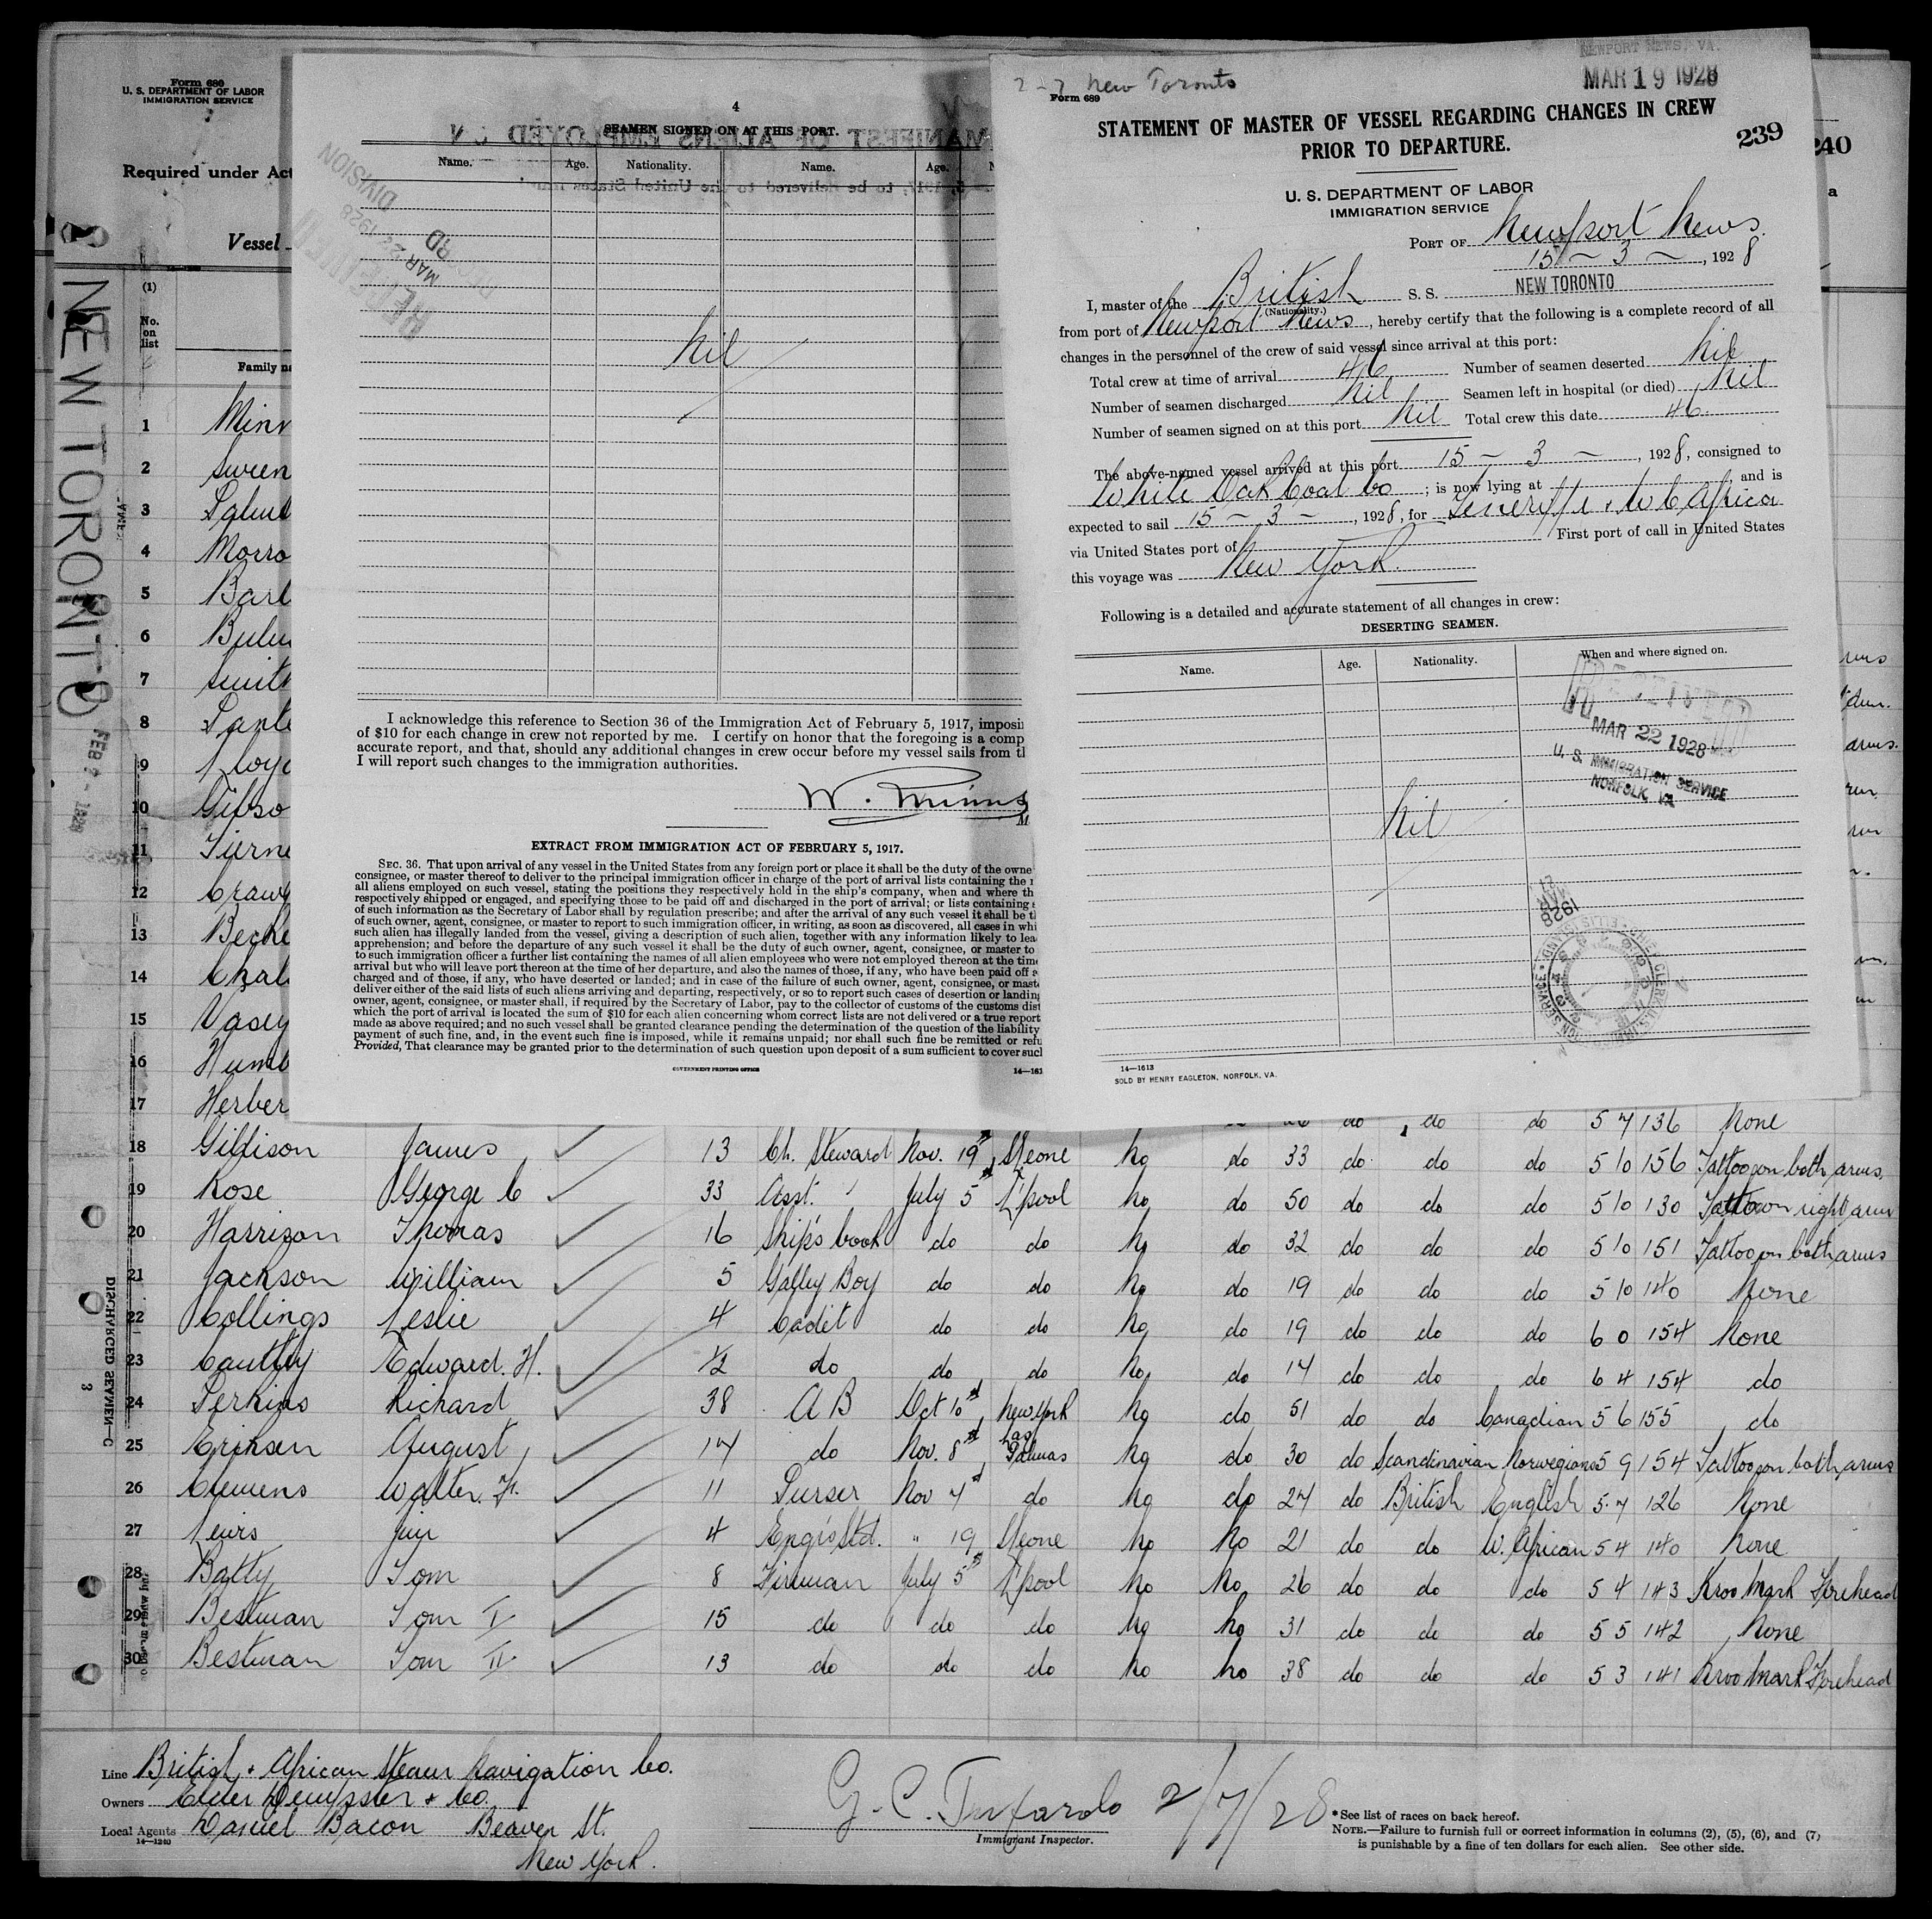 Form 689
U. S. DEPARTMENT OF LABOR
IMMIGRATION SERVICE
Required under Act
Vessel
NEW TORONTO
(1)
No.
on
list
Family na
1 Minn
2 Swen
3
4 Morro
5 Barl
6 Bulm
7 Smith
8
9
10 Gibso
11 Turne
12 Craw
13 Beche
14 Chal
15 Vasey
16 Humb
17 Herber
4
SEAMEN SIGNED ON AT THIS PORT.
Name. Age. Nationality. Name. Age. N
Nil
I acknowledge this reference to Section 36 of the Immigration Act of February 5, 1917, imposi
of $10 for each change in crew not reported by me. I certify on honor that the foregoing is a comp
accurate report, and that, should any additional changes in crew occur before my vessel sails from t
I will report such changes to the immigration authorities.
M
EXTRACT FROM IMMIGRATION ACT OF FEBRUARY 5, 1917.
SEC. 36. That upon arrival of any vessel in the United States from any foreign port or place it shall be the duty of the owne
consignee, or master thereof to deliver to the principal immigration officer in charge of the port of arrival lists containing the
all aliens employed on such vessel, stating the positions they respectively hold in the ship's company, when and where th
respectively shipped or engaged, and specifying those to be paid off and discharged in the port of arrival; or lists containing
of such information as the Secretary of Labor shall by regulation prescribe; and after the arrival of any such vessel it shall be t
of such owner, agent, consignee, or master to report to such immigration officer, in writing, as soon as discovered, all cases in whi
such alien has illegally landed from the vessel, giving a description of such alien, together with any information likely to lea
apprehension; and before the departure of any such vessel it shall be the duty of such owner, agent, consignee, or master to
to such immigration officer a further list containing the names of all alien employees who were not employed thereon at the time
arrival but who will leave port thereon at the time of her departure, and also the names of those, if any, who have been paid off
charged and of those, if any, who have deserted or landed; and in case of the failure of such owner, agent, consignee, or mast
deliver either of the said lists of such aliens arriving and departing, respectively, or so to report such cases of desertion or landing
owner, agent, consignee, or master shall, if required by the Secretary of Labor, pay to the collector of customs of the customs dist
which the port of arrival is located the sum of $10 for each alien concerning whom correct lists are not delivered or a true report
made as above required; and no such vessel shall be granted clearance pending the determination of the question of the liability
payment of such fine, and, in the event such fine is imposed, while it remains unpaid; nor shall such fine be remitted or refu
Provided, That clearance may be granted prior to the determination of such question upon deposit of a sum sufficient to cover such
GOVERNMENT PRINTING OFFICE 14—161
2-7 New Toronto
NEWPORT NEWS, VA.
MAR 19 1928
Form 689
STATEMENT OF MASTER OF VESSEL REGARDING CHANGES IN CREW
PRIOR TO DEPARTURE.
239
240
U. S. DEPARTMENT OF LABOR
IMMIGRATION SERVICE
PORT OF Newport News.
15 - 3 - , 1928
I, master of the British S. S. NEW TORONTO
(Nationality.)
from port of Newport News, hereby certify that the following is a complete record of all
changes in the personnel of the crew of said vessel since arrival at this port:
Total crew at time of arrival 46 Number of seamen deserted Nil
Number of seamen discharged Nil Seamen left in hospital (or died) Nil
Number of seamen signed on at this port Nil Total crew this date 46.
The above-named vessel arrived at this port 15 - 3 - , 1928, consigned to
White Oak Coal Co ; is now lying at , and is
expected to sail 15 - 3 - , 1928, for Teneriffe + W C Africa
via United States port of First port of call in United States
this voyage was New York.
Following is a detailed and accurate statement of all changes in crew:
DESERTING SEAMEN.
Name. Age. Nationality. When and where signed on.
RECEIVED
MAR 22 1928
U. S. IMMIGRATION SERVICE
NORFOLK, VA
Nil
14—1613
SOLD BY HENRY EAGLETON, NORFOLK, VA.
do do do 5 7 136 None
18 Gillison James 13 Ch. Steward Nov. 19 S'leone No do 33 do do do 5 10 156 Tattoo on both arms.
19 Rose George C 33 Asst. " July 5th L'pool No do 50 do do do 5 10 130 Tattoo on right arm
20 Harrison Thomas 16 Ship's Cook do do No do 32 do do do 5 10 151 Tattoo on both arms
21 Jackson William 5 Galley Boy do do No do 19 do do do 5 10 140 None
22 Collings Leslie 4 Cadet do do No do 19 do do do 6 0 154 None
23 Cautley Edward. H. 1/2 do do do No do 17 do do do 6 4 154 do
24 Perkins Richard 38 A B Oct 10th New York No do 51 do do Canadian 5 6 155 do
25 Eriksen August 14 do Nov. 8th Las Palmas No do 30 do Scandinavian Norwegian 5 9 154 Tattoo on both arms
26 Clemens Walter. F. 11 Purser Nov 7th do No do 27 do British English 5.7 126 None
27 Jim 4 Engrs Std. " 19 S'leone No No 21 do do W. African 5 4 140 None
28 Batty Tom 8 Fireman July 5th L'pool No No 26 do do do 5 4 143 Kroo Mark Forehead
29 Bestman Tom I 15 do do do No No 31 do do do 5 5 142 None
30 Bestman Tom II 13 do do do No No 38 do do do 5 3 141 Kroo Mark Forehead
DISCHARGED SEAMEN—C
3
Line British & African Steam Navigation Co.
Owners Elder Dempster & Co.
Local Agents Daniel Bacon Beaver St.
14—1240
New York.
2/7/28
Immigrant Inspector.
*See list of races on back hereof.
NOTE.—Failure to furnish full or correct information in columns (2), (5), (6), and (7)
is punishable by a fine of ten dollars for each alien. See other side.